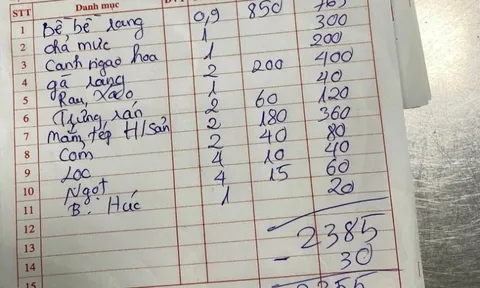 STT Danh mục
1 Bề bề rang 0,9 850 765
2 chả mực 1 300
3 Canh ngao hoa 1 200
4 gà rang 2 200 400
5 Rau xào 1 40
6 Trứng rán 2 60 120
7 Mắm tép H/Sản 2 180 360
8 Cơm 2 40 80
9 Lọc 4 10 40
10 Ngọt 4 15 60
11 B. Húc 1 20
12 2385
13 - 30
14
15 2355